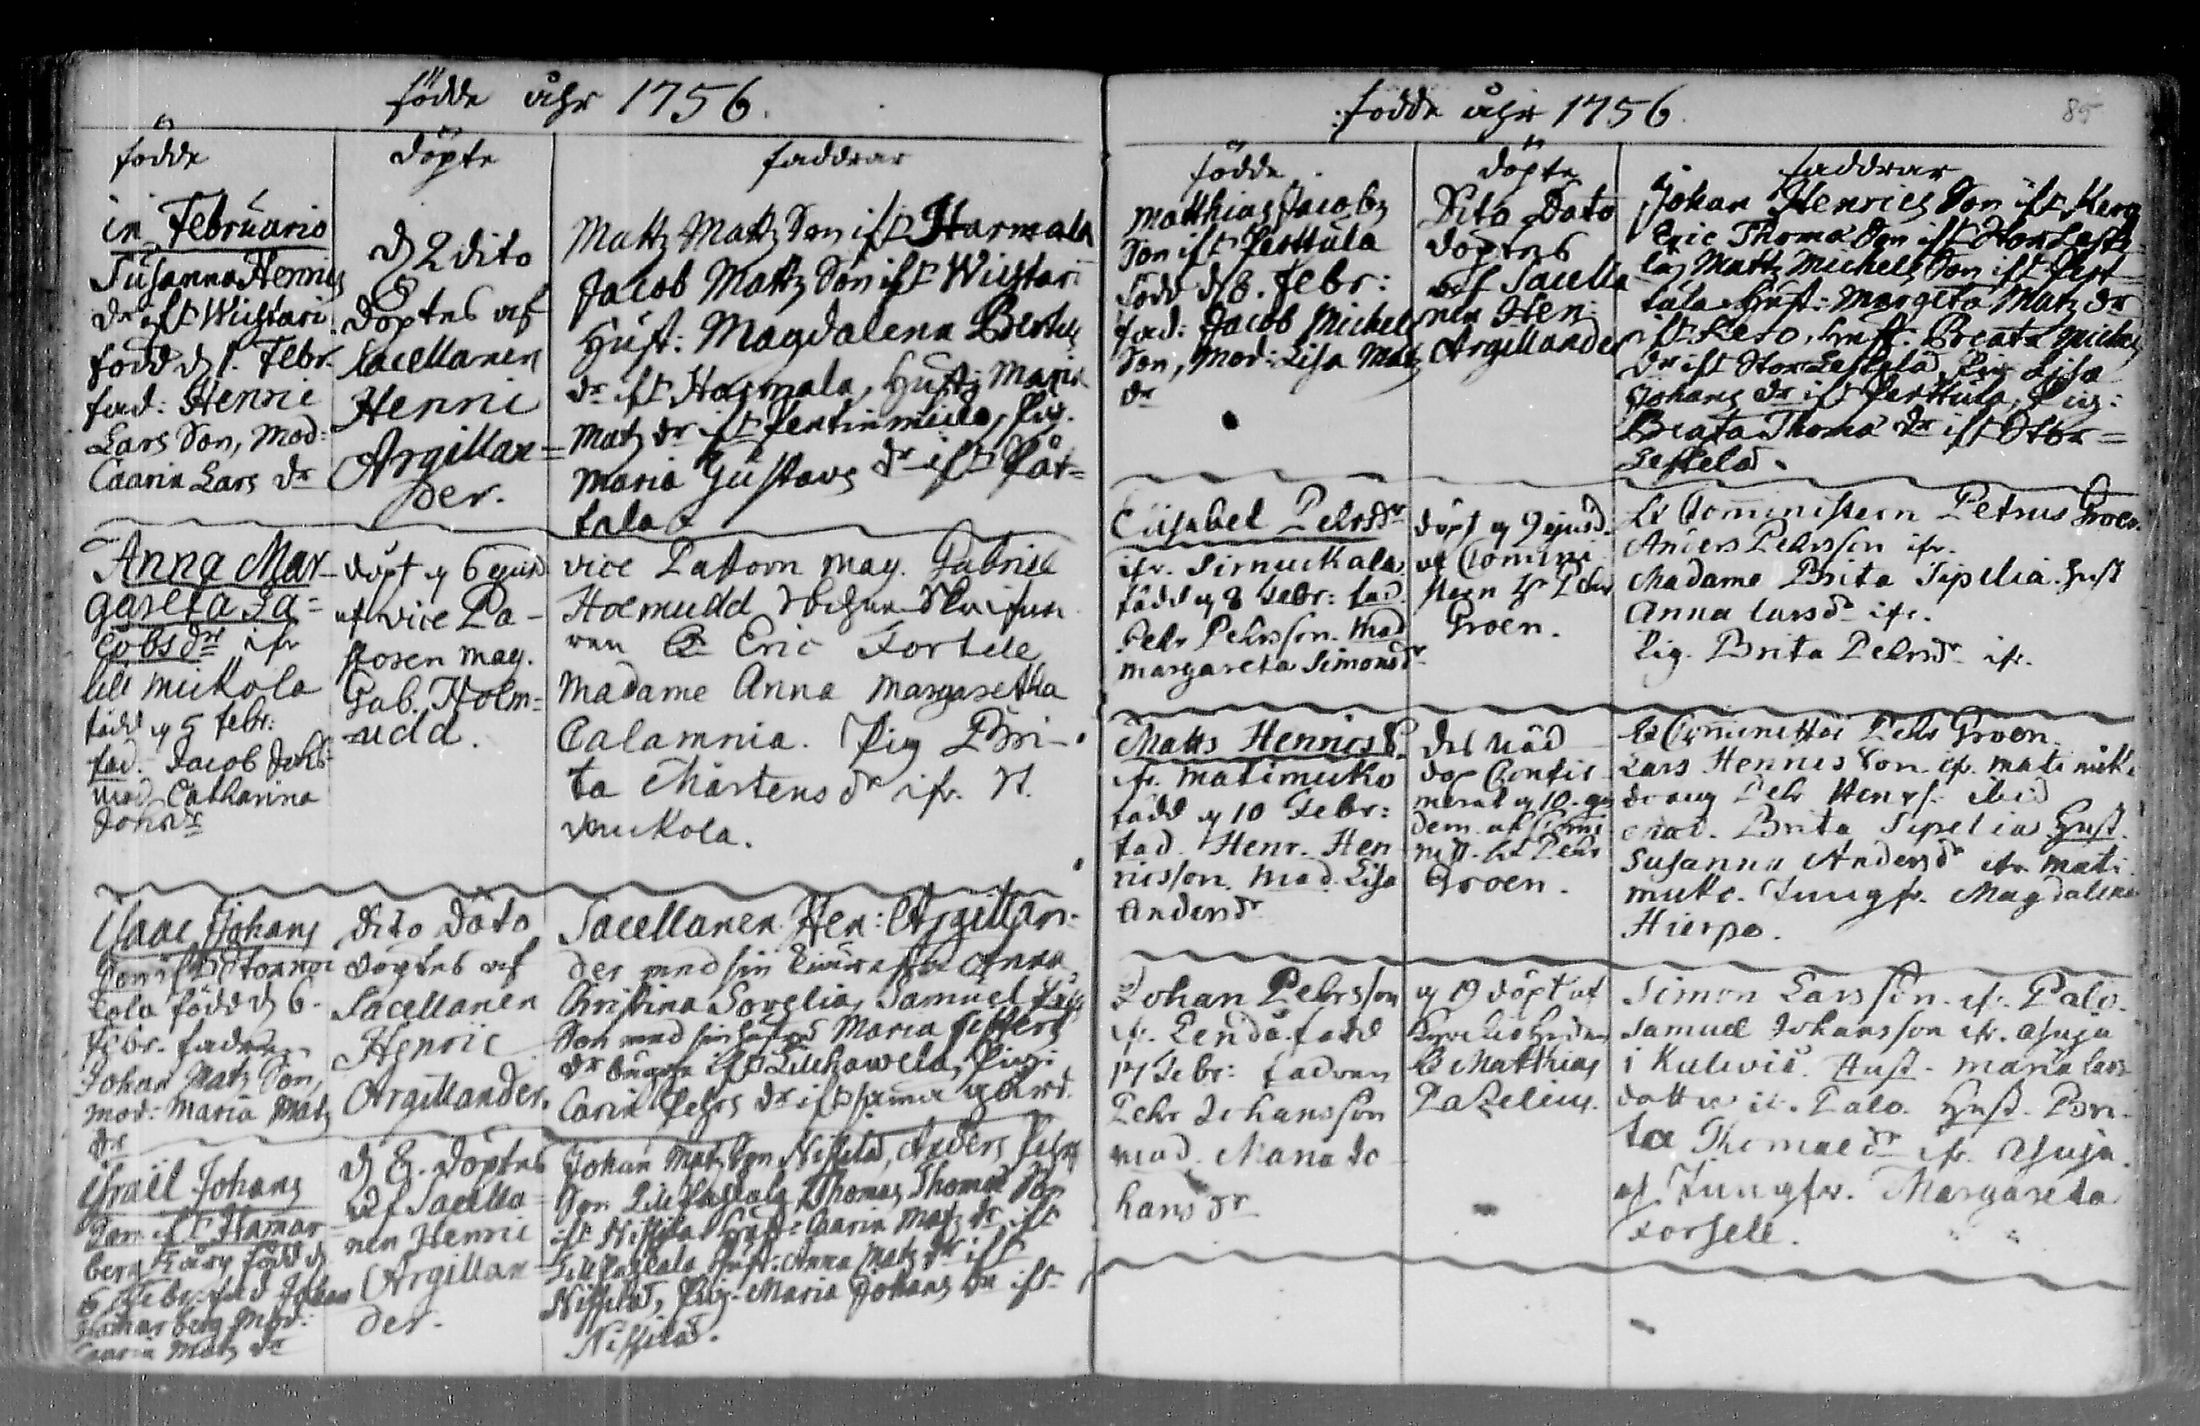 födde åhr 1756.
födde
döpte
faddrar
in Februario
Susanna Henrics
dr ifr Wichtari
född d 1. Febr.
fad: Henric
Lars Son, Mod:
Caarin Lars dr
d 2 dito
döptes af
Sacellanen
Henric
Argillan=
der.
Matts Matts Son ifr Harmala
Jacob Matts Son ifr Wichtari
Hust: Magdalena Bertils
dr ifr Harmala, Hust: Maria
Matz dr ifr Pentinmicco, Pig.
Maria Gustavs dr ifr Pär=
tala
Anna Mar-
gareta Ja=
cobsdr ifr
lill mickola
född d 5 febr:
fad. Jacob
mod Catharina
Jonsdr
döpt d 6 ejusd
af vice Pa-
storen mag.
Gab. Holm=
udd.
vice Pastorn mag. Gabriel
Holmudd
Eric Fortelle
Madame Anna Margaretha
Calamnia. Pig Bri-
ta Mårtens dr ifr. st.
Mickola.
Isaac Johans
Son ifr
född d 6.
Febr. fadren
Johan Matz Son,
mod: Maria Matz
dr
Dito Dato
döptes af
Sacellanen
Henric
Argillander.
Sacellanen Hen: Argillan-
der med sin Anna
Christina Sovelia, Samuel
Son med sin hustru Maria
dr ifr Lillhowela, Pig:
Carin Pehrs dr ifr samma gård.
Israel Johans
Son ifr Hamar-
berg född d
6 Febr. fad Johan
Hamarberg Mod:
Caarin Matz dr
d 8. döptes
af Sacella=
nen Henric
Argillan=
der.
Johan Matz Son Nissilä, Anders Pehrs
Son Lill Thomas Thomas Son
ifr Nissilä Hust: Caarin Matz dr ifr
Lill Hust: Anna Matz dr ifr
Nissilä, Pig. Maria Johans dr ifr
Nissilä.
födde åhr 1756.
85
födde
döpte
faddrar
Matthias Jacobs
Son ifr Perttula
född d 8. Febr:
fad: Jacob Michels
Son, Mod: Lisa Matz
dr
Dito Dato
döptes
af Sacella
nen Hen:
Argillander
Johan Henrics Son ifr Kero
Eric Thomæ Son ifr Stor
Matts Michels Son ifr Pert=
tula Hust: Margeta Matz dr
ifr Kero, Hust. Beata Michels
dr ifr Stor Pig Lisa
Johans dr ifr Perttula, Pig:
Beata Thomæ dr ifr Stor=

Elisabet Pehrsdr
ifr. Sirnuckala
född d 8 Febr: fad.
Pehr Pehrsson. mod
Margareta Simonsdr
döpt d 9 ejusd.
af Commini
stern Hr Pehr
Groen.
Hr Comministern Petrus Groen.
Anders Pehrsson ifr.
Madame Brita Sipelia. Hust
Anna Larsdr ifr.
Pig. Brita Pehrsdr ifr.
Matts Henrics S.
ifr. Matimicko
född d 10 Febr:
fad. Henr. Hen
ricsson. mod. Lisa
Andersdr
Des nöd
dop Confir
merat d 10. ejus
dem. af
Hr Pehr
Groen.
Hr Pehr Groen
Lars Henrics Son ifr. Mati micko
dräng Pehr Henrs: ibid
Mad. Brita Sipelia Hust.
Susanna Andersdr ifr. Mati
micko. Jungfr. Magdalena
Hierpe.
Johan Pehrsson
ifr. född
17 Febr: fadren
Pehr Johansson
mod. Maria Jo
hansdr
d 19 döpt af

Matthias
Pazelius.
Simon Larsson ifr. Palo.
Samuel Johansson ifr. Ahuja
i Kulwis. Hust. Maria Lars
dotter ifr. Palo. Hust. Bri-
ta Thomædr ifr. Ahuja.
Jungfr. Margareta
Forsell.